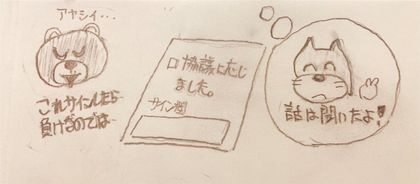 アヤシイ…
これサインしたら
負けなのでは…
口協議に応じ
ました。
サイン欄
話は聞いたよ!